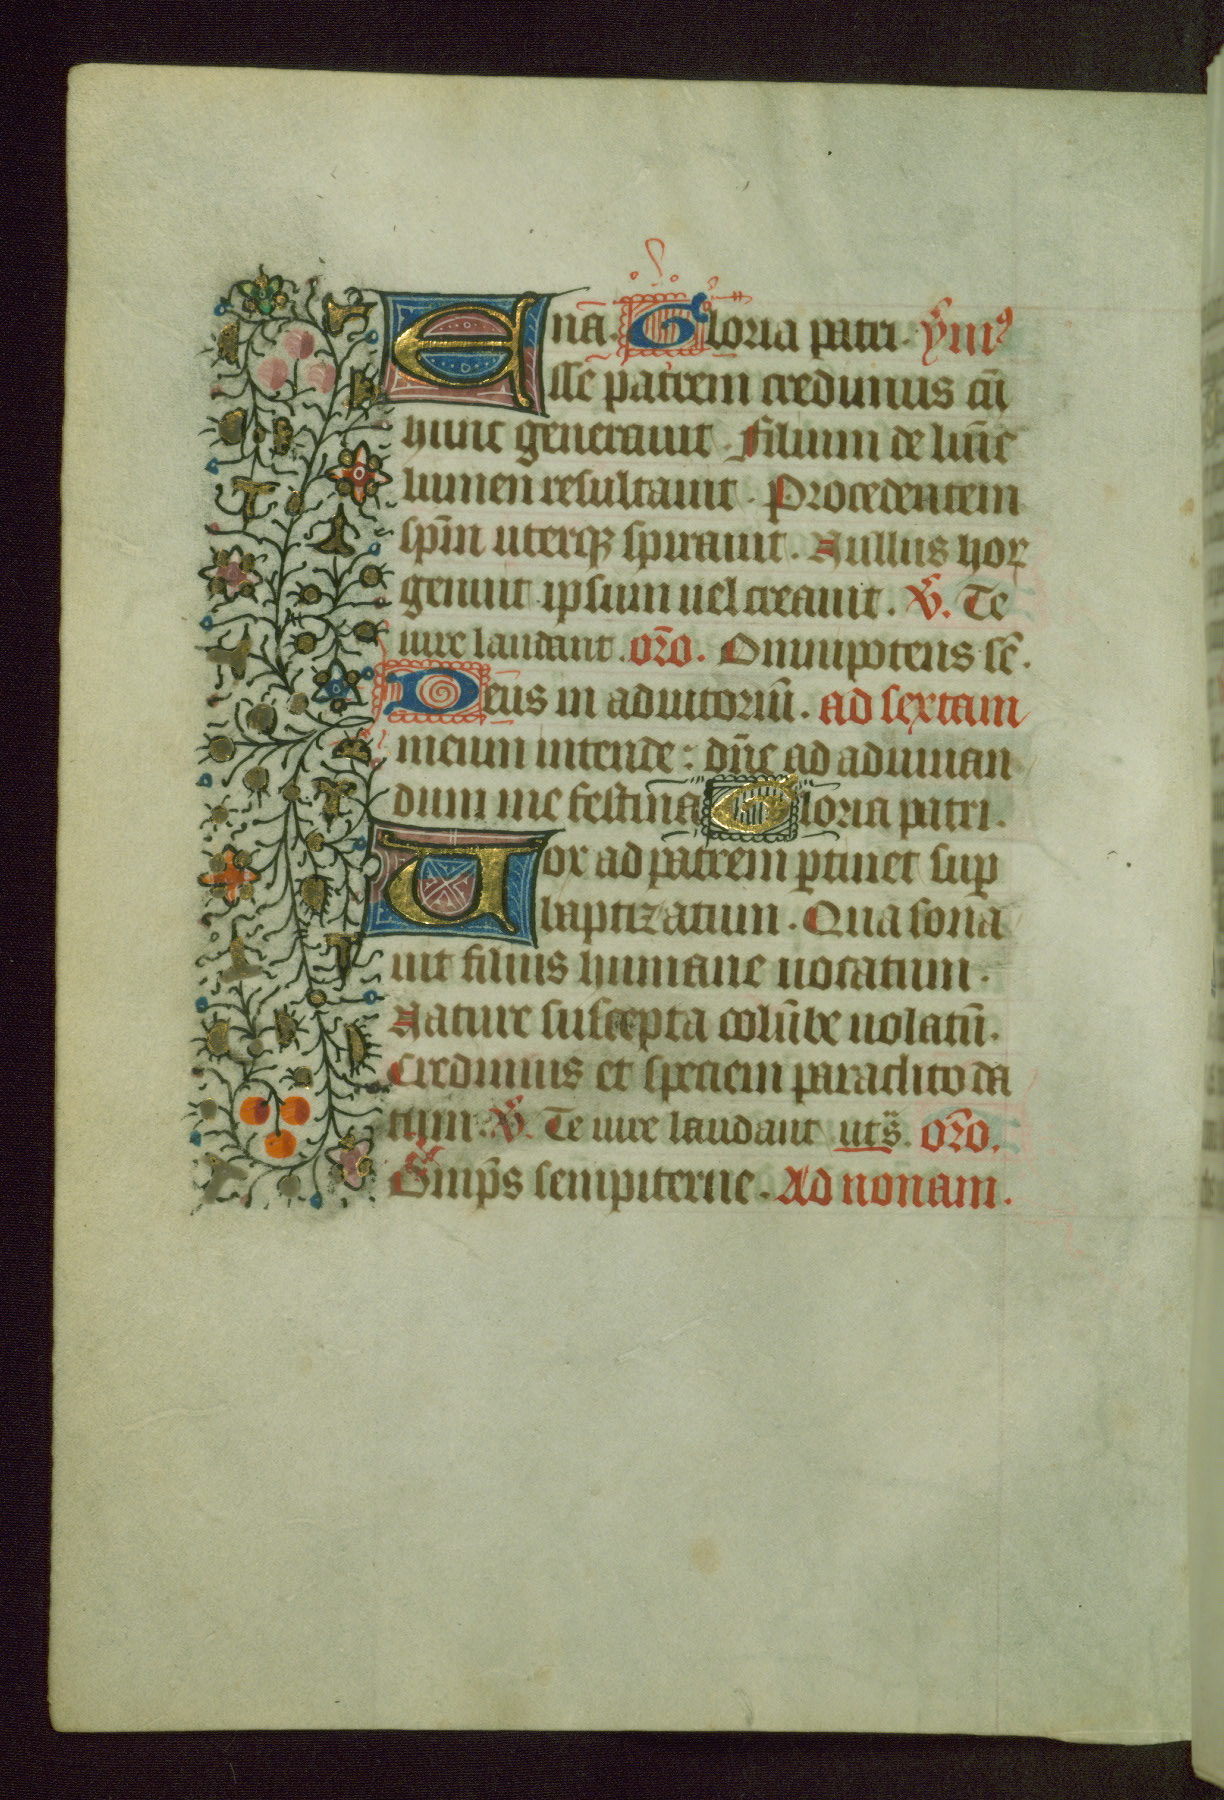 nā. Gloria patri. ȳmꝰ
Esse patrem credimus cū
hunc generauit. Filium de lūīe
lumen resultauit. Procedentem
spm̄ uterq; spirauit. Nullus hoꝝ
genuit ipsum uel creauit. v̄. Te
iure laudant. or̄o. Omnipotens sē.
Deus in adiutoriū. ad sextam
meum intende: dn̄e ad adiuuan
dum me festina Gloria patri.
Vox ad patrem ꝑtinet suꝑ
baptizatum. Qua sona
uit filius humane uocatum.
Nature suscepta colūbe uolatū.
Credimus et speciem paraclito da
tum. v̄. Te iure laudant uts̄. or̄o.
Omp̄s sempiterne. Ad nonam.